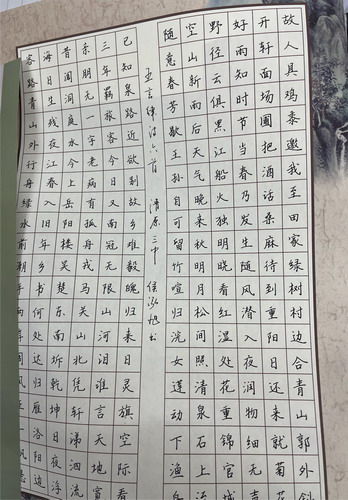 故人具鸡黍邀我至田家绿树村边合青山郭外斜
开轩面场圃把酒话桑麻待到重阳日还来就菊花
好雨知时节当春乃发生随风潜入夜润物细无声
野径云俱黑江船火独明晓看红湿处花重锦官城
空山新雨后天气晚来秋明月松间照清泉石上流
随意春芳歇王孙自可留竹喧归浣女莲动下渔舟
五言律诗六首 清原三中 侯泓旭书
已知泉路近欲别故乡难毅魄归来日灵旗空际看
三年羁旅客今日又南冠无限山河泪谁言天地宽
亲朋无一字老病有孤舟戎马关山北凭轩涕泗流
昔闻洞庭水今上岳阳楼吴楚东南坼乾坤日夜浮
海日生残夜江春入旧年乡书何处达归雁洛阳边
客路青山外行舟绿水前潮平两岸阔风正一帆悬